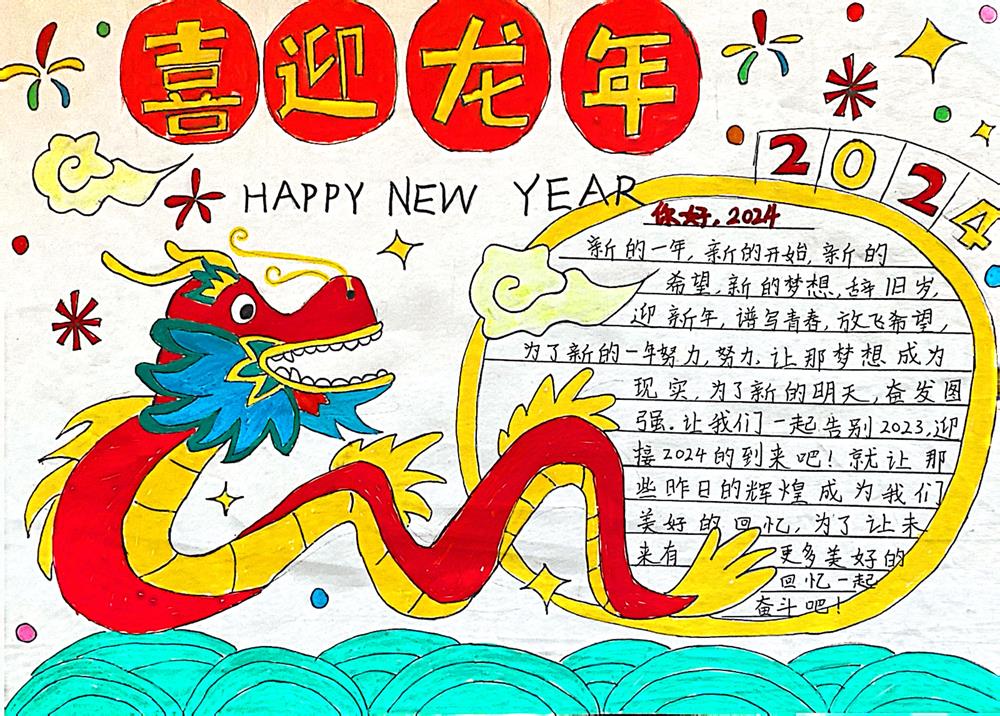 喜迎龙年
HAPPY NEW YEAR
2024
你好,2024
新的一年,新的开始,新的
希望,新的梦想,辞旧岁,
迎新年,谱写青春,放飞希望,
为了新的一年努力,努力,让那梦想成为
现实,为了新的明天,奋发图
强.让我们一起告别2023,迎
接2024的到来吧!就让那
些昨日的辉煌成为我们
美好的回忆,为了让未
来有更多美好的
回忆一起
奋斗吧!